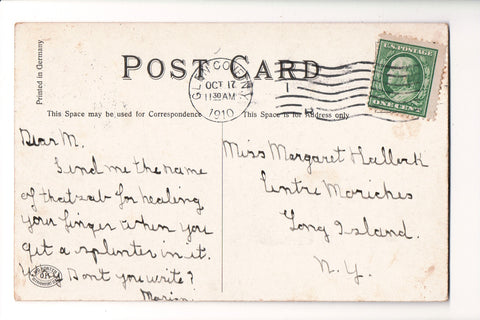 POST CARD
Printed in Germany
GLEN COVE, N.Y.
OCT 17
11 30 AM
1910
1
U.S. POSTAGE
ONE CENT
This Space may be used for Correspondence
This Space is for Address only
Dear M.
Send me the name
of that salb for healing
your finger when you
get a splinter in it.
Why Dont you write?
Marion
Miss Margaret Hallock
Centre Moriches
Long Island.
N. Y.